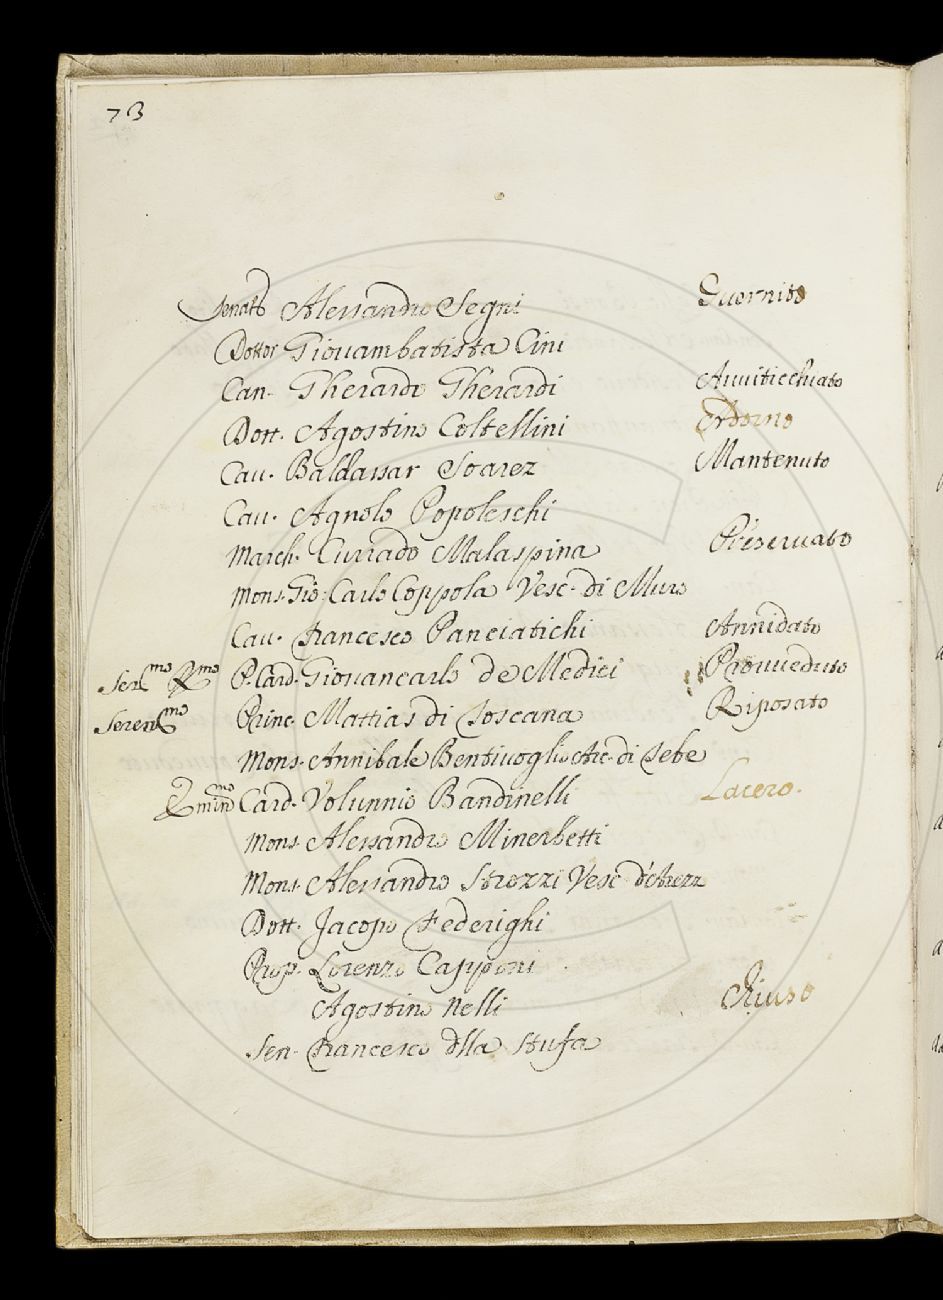 73
Senato Alessandro Segni Guernito
Dottor Giouambatista Cini
Can. Gherardo Gherardi Auuiticchiato
Dott. Agostino Coltellini
Cau. Baldassar Soarez Mantenuto
Cau. Agnolo Popoleschi
March. Currado Malaspina Preseruato
Mons. Gio: Carlo Coppola Vesc. di Muro
Cau. Francesco Panciatichi Annidato
Ser.mo R.mo P. Card. Giouancarlo de Medici Prouueduto
Seren.mo Princ. Mattias di Toscana Riposato
Mons. Annibale Bentiuoglio Arc. di Tebe
Card. Volunnio Bandinelli Lacero.
Mons. Alessandro Minerbetti
Mons. Alessandro Strozzi Vesc. d'Arezz
Dott. Jacopo Federighi
Prop. Lorenzo Capponi
Agostino Nelli
Sen. Francesco dlla Stufa